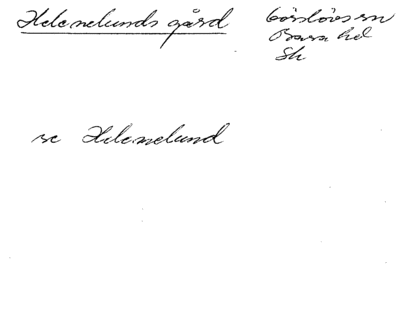 Helenelunds gård
Görslövs sn
Bara hd
Sk
se Helenelund